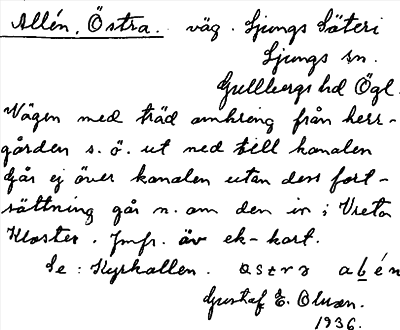 Allén, Östra. väg. Ljungs Säteri
Ljungs sn.
Gullbergs hd Ögl.
Vägen med träd omkring från herr-
gården s. ö. ut ned till kanalen
Går ej över kanalen utan dess fort-
sättning går n. om den in i Vreta
Kloster. Jmfr. äv ek-kart.
Se: Kyrkallen. əstrə
Gustaf E. Olsson.
1936.